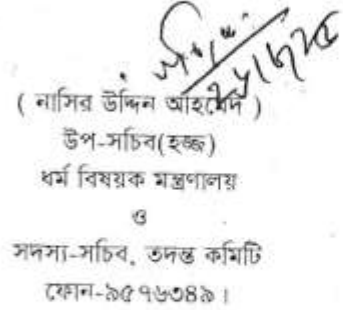 ( নাসির উদ্দিন আহমেদ )
উপ-সচিব(হজ্জ)
ধর্ম বিষয়ক মন্ত্রণালয়
ও
সদস্য-সচিব, তদন্ত কমিটি
ফোন-৯৫৭৬৩৪৯।